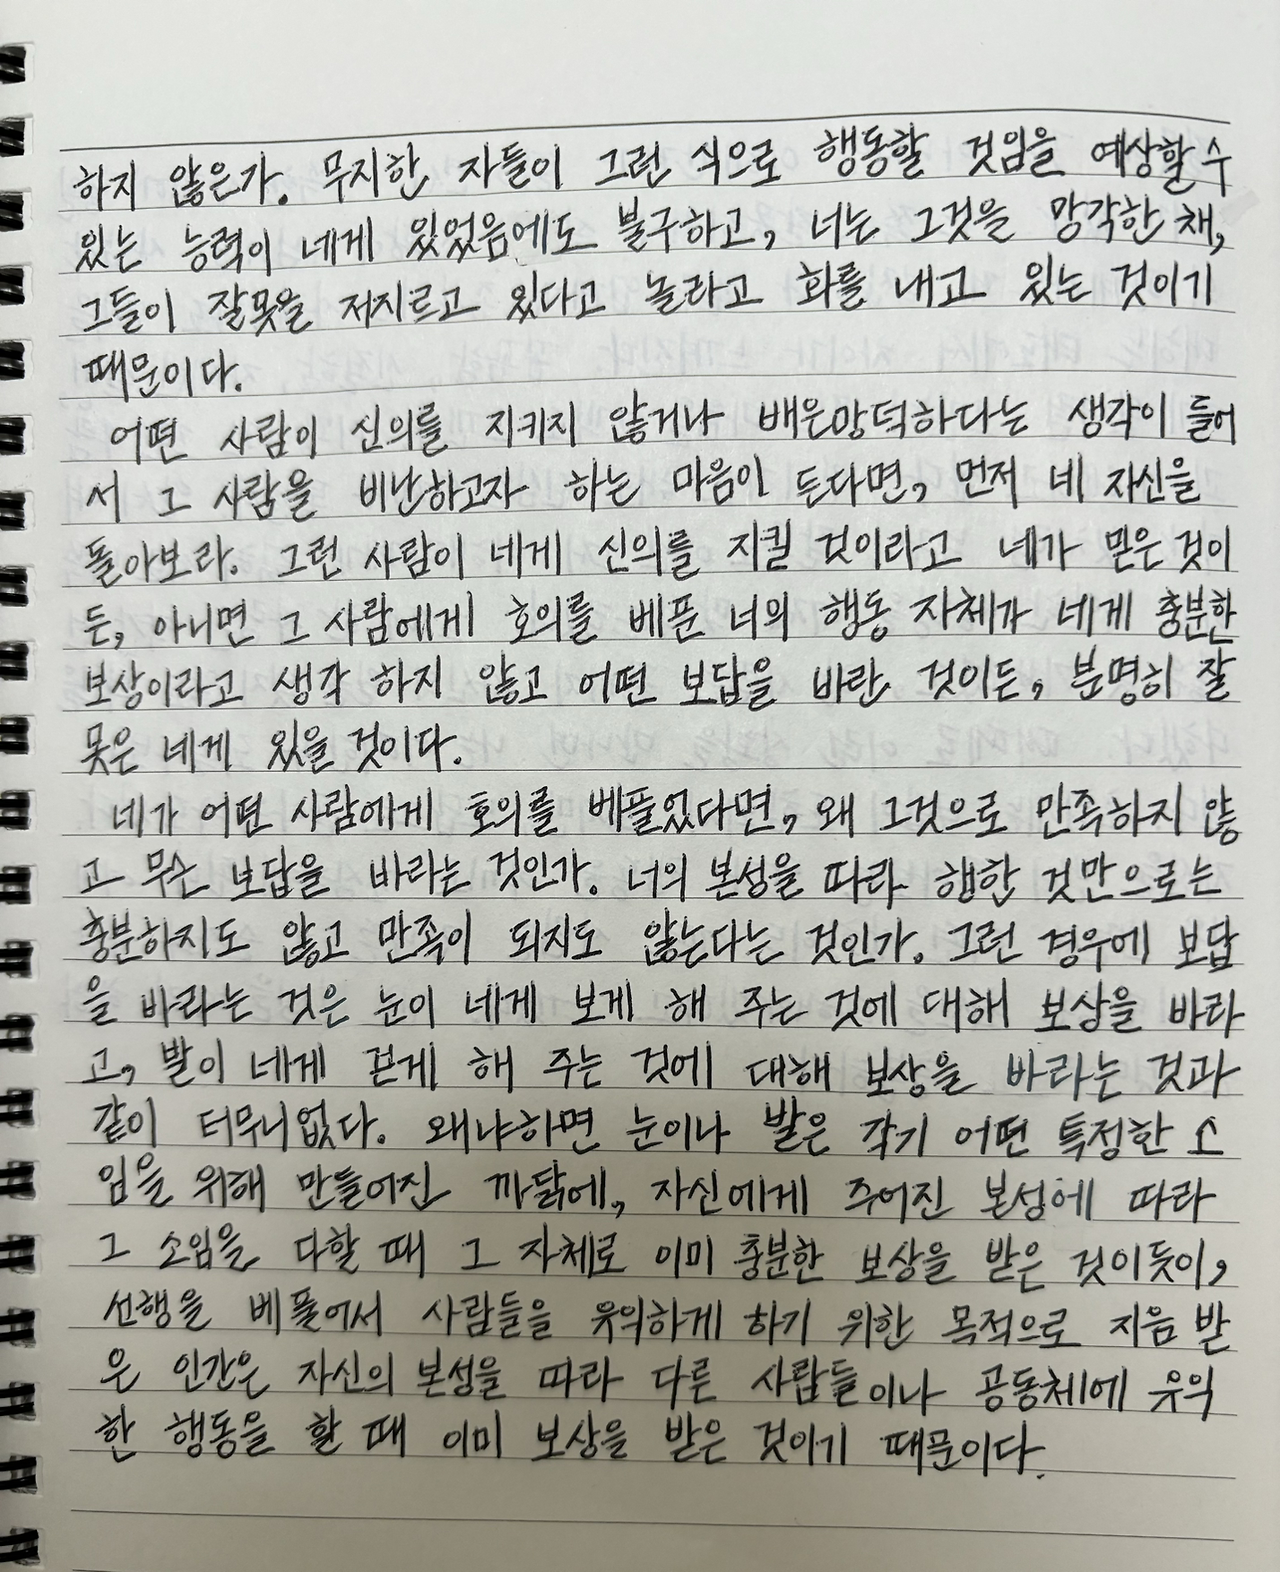 하지 않은가. 무지한 자들이 그런 식으로 행동할 것임을 예상할 수
있는 능력이 네게 있었음에도 불구하고, 너는 그것을 망각한 채,
그들이 잘못을 저지르고 있다고 놀라고 화를 내고 있는 것이기
때문이다.
어떤 사람이 신의를 지키지 않거나 배은망덕하다는 생각이 들어
서 그 사람을 비난하고자 하는 마음이 든다면, 먼저 네 자신을
돌아보라. 그런 사람이 네게 신의를 지킬 것이라고 네가 믿은 것이
든, 아니면 그 사람에게 호의를 베푼 너의 행동 자체가 네게 충분한
보상이라고 생각 하지 않고 어떤 보답을 바란 것이든, 분명히 잘
못은 네게 있을 것이다.
네가 어떤 사람에게 호의를 베풀었다면, 왜 그것으로 만족하지 않
고 무슨 보답을 바라는 것인가. 너의 본성을 따라 행한 것만으로는
충분하지도 않고 만족이 되지도 않는다는 것인가. 그런 경우에 보답
을 바라는 것은 눈이 네게 보게 해 주는 것에 대해 보상을 바라
고, 발이 네게 걷게 해 주는 것에 대해 보상을 바라는 것과
같이 터무니없다. 왜냐하면 눈이나 발은 각기 어떤 특정한 소
임을 위해 만들어진 까닭에, 자신에게 주어진 본성에 따라
그 소임을 다할 때 그 자체로 이미 충분한 보상을 받은 것이듯이,
선행을 베풀어서 사람들을 유익하게 하기 위한 목적으로 지음 받
은 인간은 자신의 본성을 따라 다른 사람들이나 공동체에 유익
한 행동을 할 때 이미 보상을 받은 것이기 때문이다.